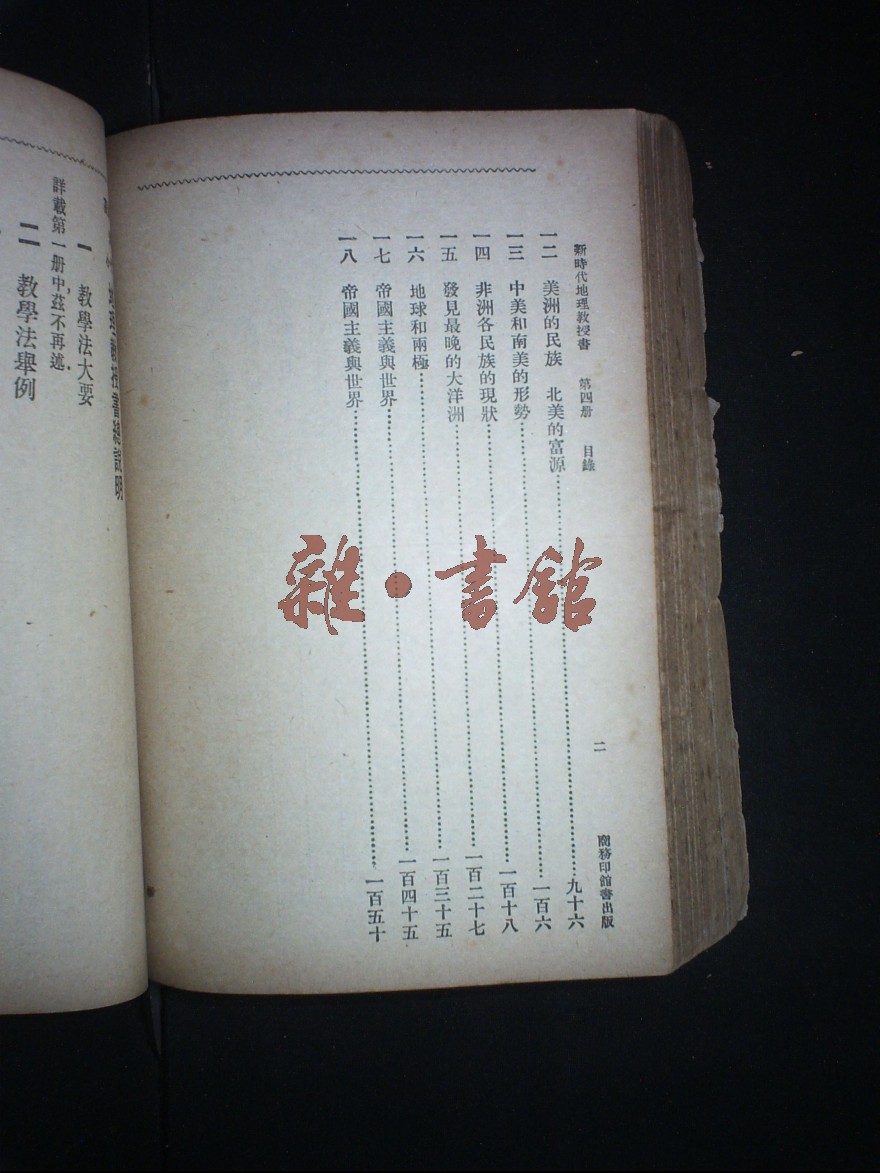 新時代地理教授書 第四册 目錄 二 商務印館書出版
一二 美洲的民族 北美的富源……九十六
一三 中美和南美的形勢……一百六
一四 非洲各民族的現狀……一百十八
一五 發見最晚的大洋洲……一百二十七
一六 地球和兩極……一百三十五
一七 帝國主義與世界……一百四十五
一八 帝國主義與世界……一百五十
地理教授書總說明
一 教學法大要
詳載第一册中茲不再述.
二 教學法舉例
雜·書館